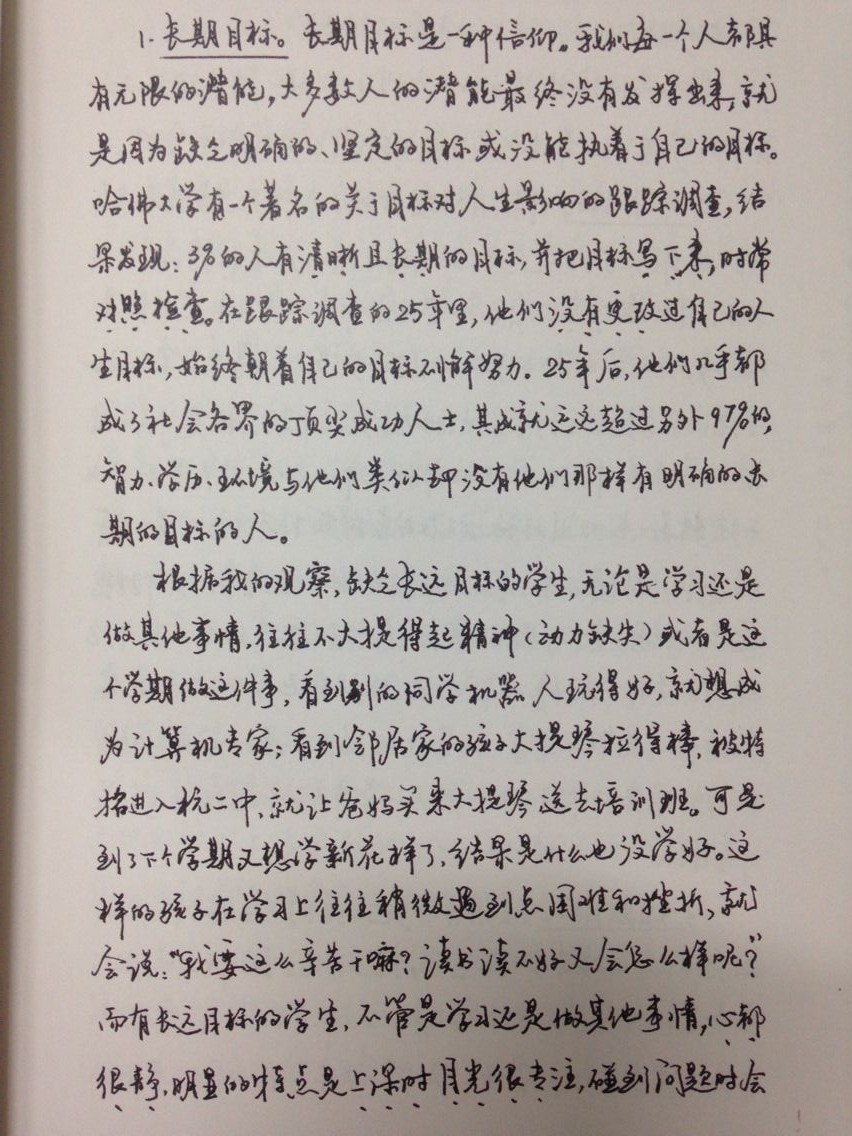 1. 长期目标。长期目标是一种信仰。我们每一个人都具
有无限的潜能，大多数人的潜能最终没有发挥出来，就
是因为缺乏明确的、坚定的目标或没能执着于自己的目标。
哈佛大学有一个著名的关于目标对人生影响的跟踪调查，结
果发现：3%的人有清晰且长期的目标，并把目标写下来，时常
对照检查。在跟踪调查的25年里，他们没有更改过自己的人
生目标，始终朝着自己的目标不懈努力。25年后，他们几乎都
成了社会各界的顶尖成功人士，其成就远远超过另外97%的，
智力、学历、环境与他们类似却没有他们那样有明确的长
期的目标的人。
根据我的观察，缺乏长远目标的学生，无论是学习还是
做其他事情，往往不大提得起精神（动力缺失）或者是这
个学期做这件事，看到别的同学机器人玩得好，就想成
为计算机专家；看到邻居家的孩子大提琴拉得棒，被特
招进入杭二中，就让爸妈买来大提琴送去培训班。可是
到了下个学期又想学新花样了，结果是什么也没学好。这
样的孩子在学习上往往稍微遇到点困难和挫折，就
会说：“我要这么辛苦干嘛？读书读不好又会怎么样呢？”
而有长远目标的学生，不管是学习还是做其他事情，心都
很静，明显的特点是上课时目光很专注，碰到问题时会